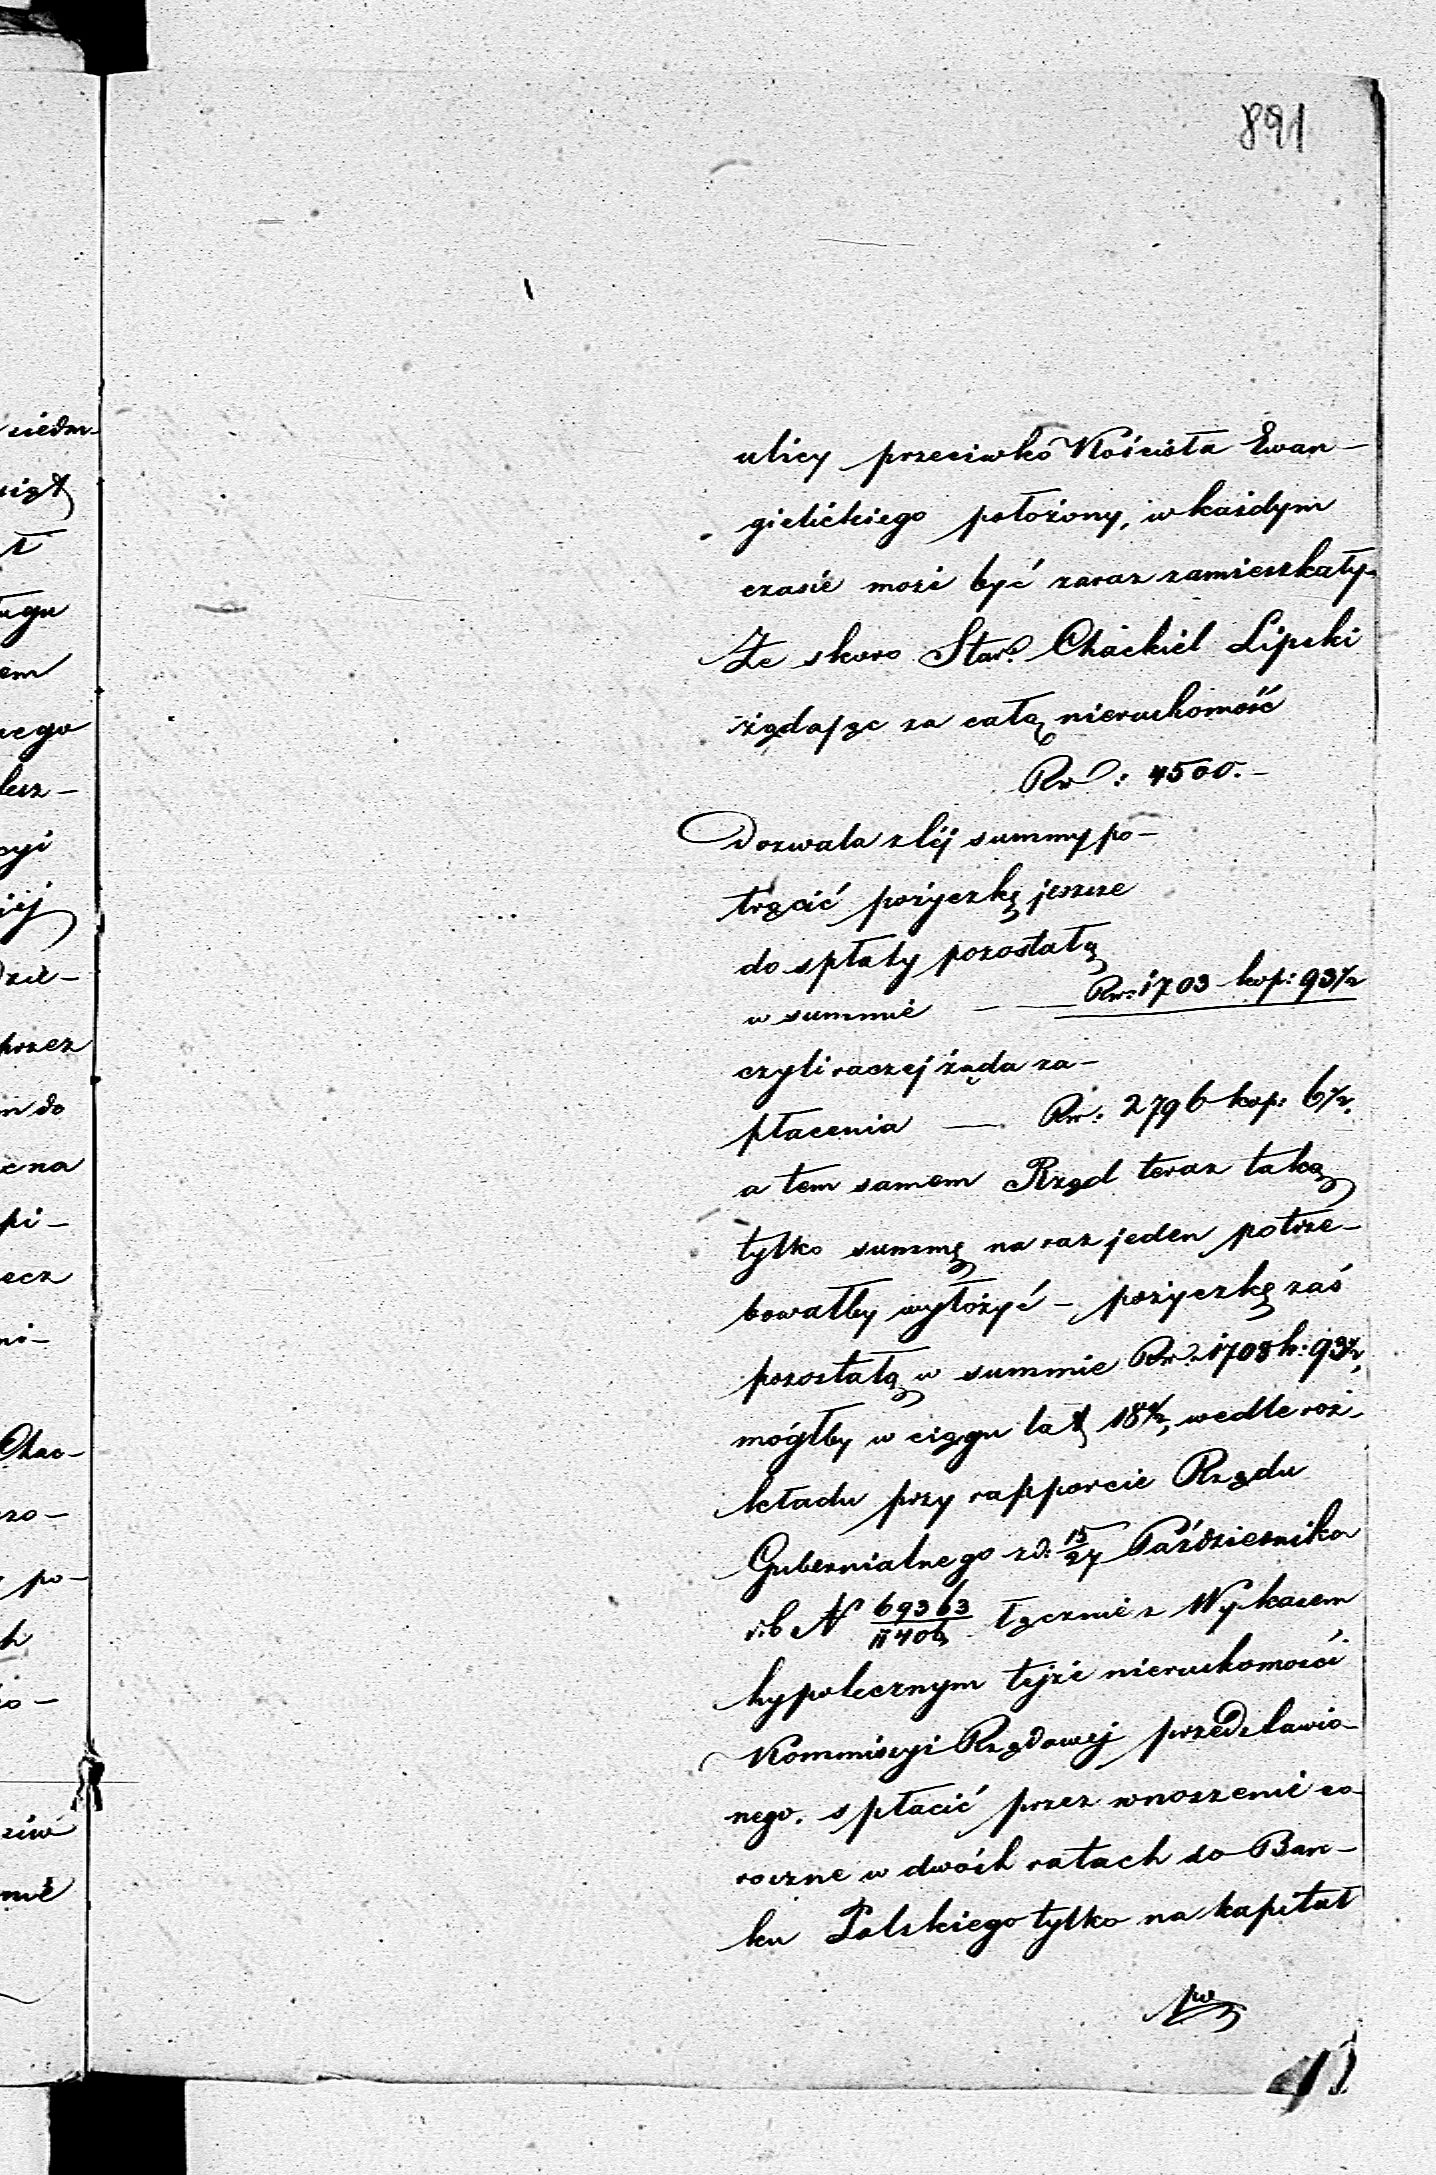 891
ulicy przeciwko Kościoła Ewan-
gielickiego położony, w każdym
czasie może być zaraz zamieszkały.
Że skoro Star: Chackiel Lipski
żądając za całą nieruchomość
Rs: 4500.-
Dozwala z tej summy po-
trącić pożyczkę jeszcze
do spłaty pozostałą
w summie — Rs: 1703 kop: 93½
czyli raczej żąda za-
płacenia — Rs: 2796 kop: 6½.
a tem samem Rząd teraz taką
tylko summę na raz jeden potrze-
bowałby wyłożyć - pożyczkę zaś
pozostałą w summie Rs: 1703 k: 93½,
mógłby w ciągu lat 18½, wedle roz-
kładu przy rapporcie Rządu
Gubernialnego z d: 15/27 Października
r.b. N 69363/11406 łącznie z Wykazem
hypotecznym tejże nieruchomości
Kommissyi Rządowej przedstawio-
nego, spłacić przez wnoszenie co-
roczne w dwóch ratach do Ban-
ku Polskiego tylko na kapitał
po
siedm-
ugu
em
nego
cyi
iej
przez
m do
na
pi-
ecz
ni-
Chac-
zo-
po-
h